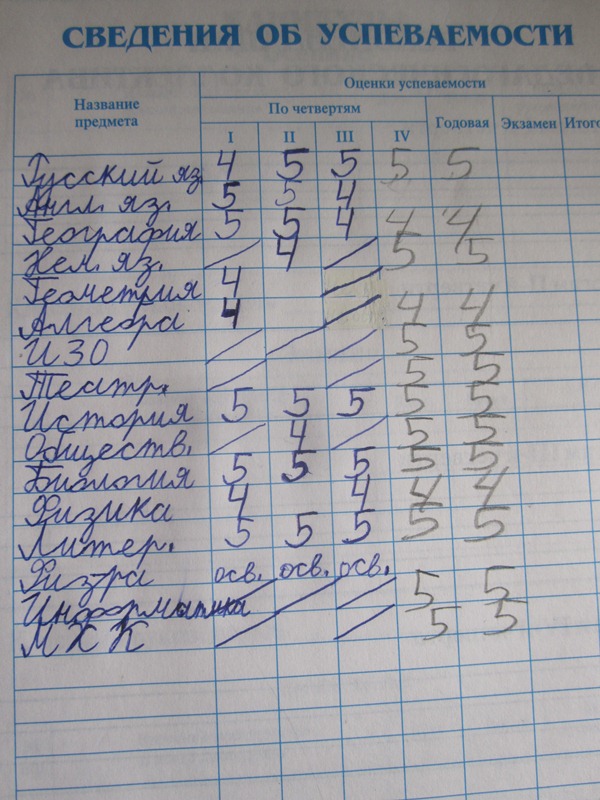 СВЕДЕНИЯ ОБ УСПЕВАЕМОСТИ
Название предмета
Оценки успеваемости
По четвертям
Годовая Экзамен Итого
I II III IV
Русский яз 4 5 5 5 5
Англ. яз. 5 5 4
География 5 5 4 4 4
Нем. яз. / 4 / 5 5
Геометрия 4 /
Алгебра 4 / 4 4
ИЗО / / / 5 5
Театр. / / 5 5
История 5 5 5 5 5
Обществ. / 4 / 5 5
Биология 5 5 5 5 5
Физика 4 4 4 4
Литер. 5 5 5 5 5
Физ-ра осв. осв. осв.
Информатика / / / 5 5
МХК / / 5 5